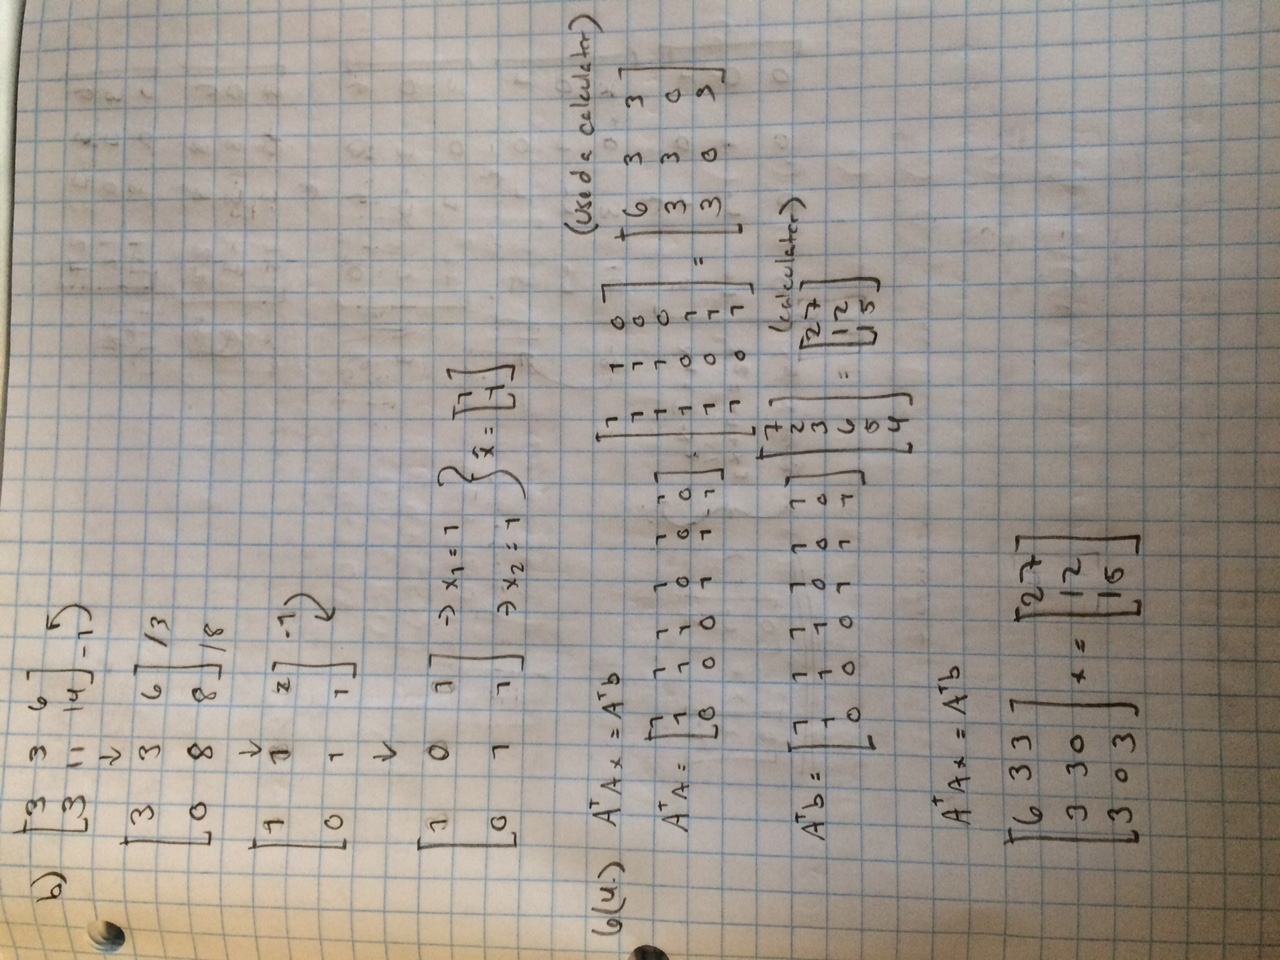 b) [3 3 6]
[3 11 14] -1
↓
[3 3 6] /3
[0 8 8] /8
↓
[1 1 2] -1
[0 1 1]
↓
[1 0 1] → x₁ = 1
[0 1 1] → x₂ = 1 } x̂ = [1 1]
(used a calculator)
6(4.) AᵀAx = Aᵀb
AᵀA = [1 1 1 1 1 1; 1 1 1 0 0 0; 0 0 0 1 1 1] · [1 1 0; 1 1 0; 1 1 0; 1 0 1; 1 0 1; 1 0 1] = [6 3 3; 3 3 0; 3 0 3]
(calculator)
Aᵀb = [1 1 1 1 1 1; 1 1 1 0 0 0; 0 0 0 1 1 1] [7; 2; 3; 6; 5; 4] = [27; 12; 15]
AᵀAx = Aᵀb
[6 3 3]
[3 3 0] x = [27; 12; 15]
[3 0 3]